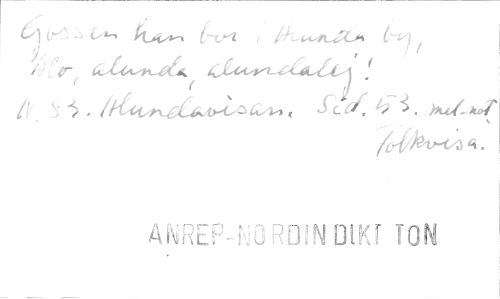 Gossen han bor i Alunda by,
Alo, alunda, alundalej!
N. 53. Alundavisan. Sid. 53. mel-not.
Folkvisa.
ANREP-NORDIN DIKT TON